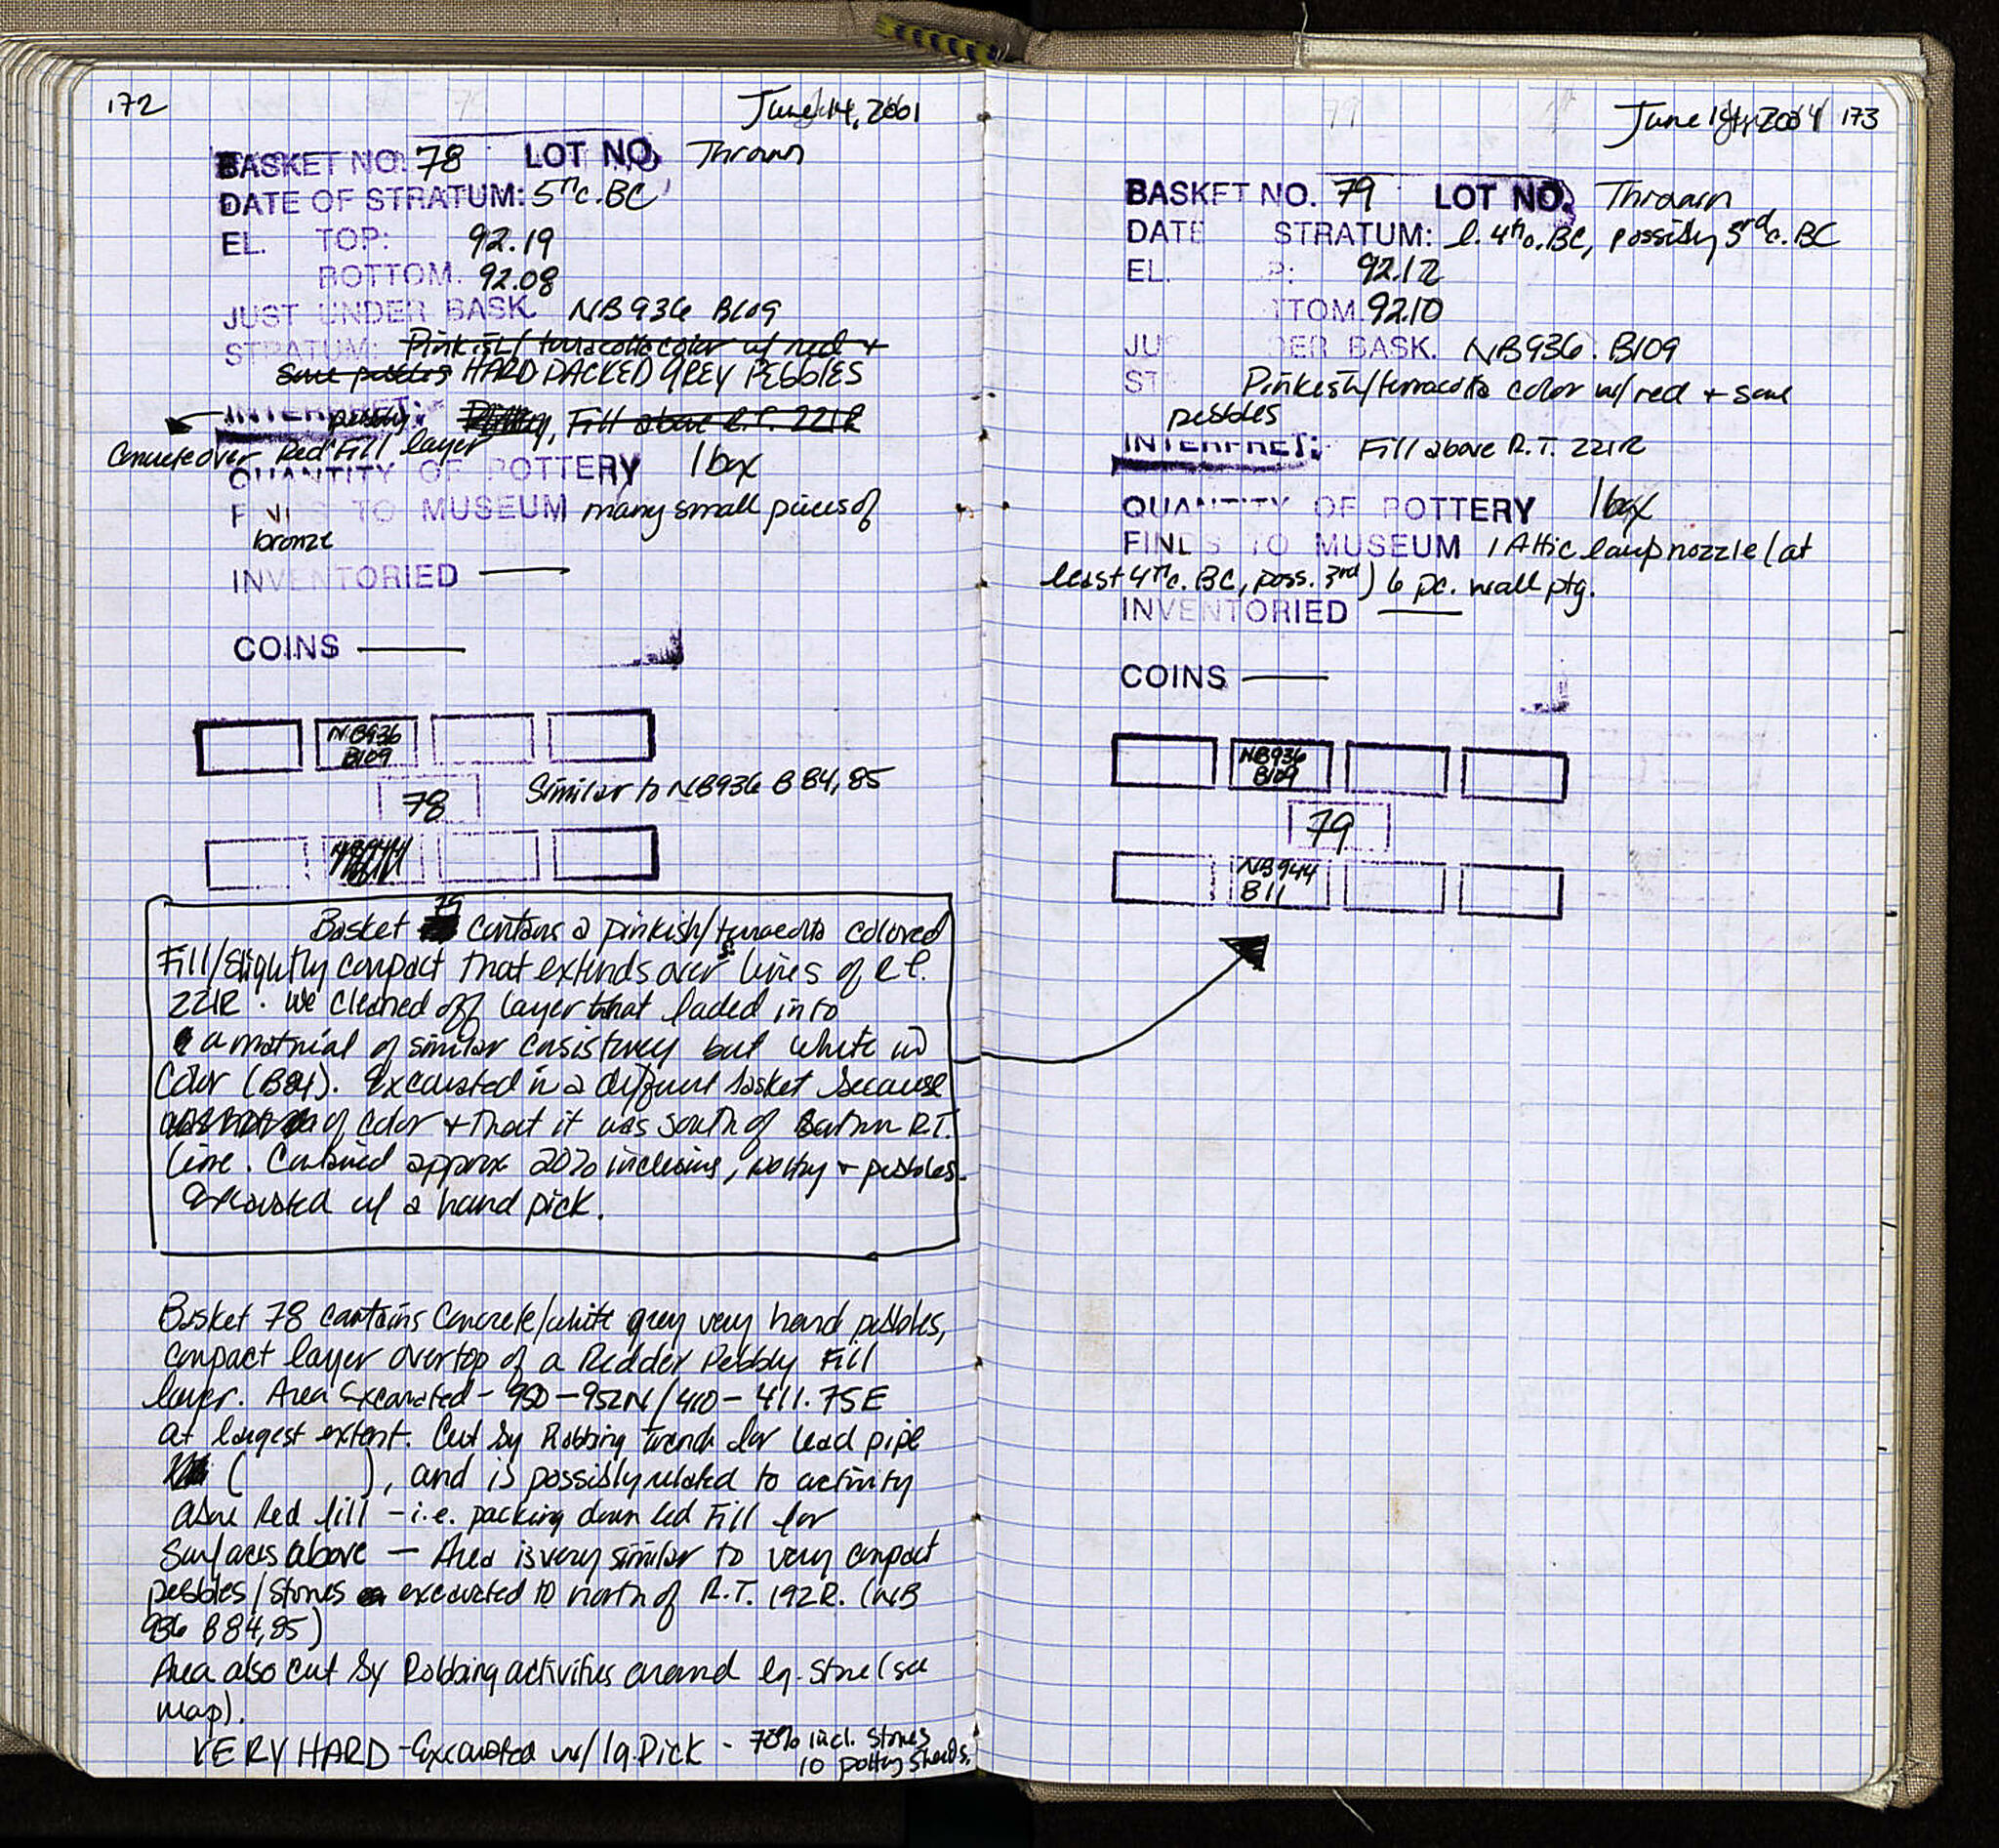 172
June 14, 2001
BASKET NO. 78 LOT NO. Thrown
DATE OF STRATUM: 5th c. BC
EL. TOP: 92.19
BOTTOM. 92.08
JUST UNDER BASK. NB936 B109
STRATUM: Pinkish/terracotta color w/ red +
some pebbles HARD PACKED GREY PEBBLES
INTERPRET: pebbly, Fill above R.T. 221R
Concrete over Red Fill layer
QUANTITY OF POTTERY 1 box
FINDS TO MUSEUM many small pieces of
bronze
INVENTORIED —
COINS —
NB936
B109
78 Similar to NB936 B84,85
Basket 79 contains a pinkish/terracotta colored
Fill/slightly compact that extends over lines of R.T.
221R. We cleaned off layer that faded into
a material of similar consistency but white in
color (B84). Excavated in a different basket because
of color + that it was south of R.T.
line. Contained approx 20% inclusions, pottery + pebbles.
Excavated w/ a hand pick.
Basket 78 contains Concrete/white grey very hard pebbles,
compact layer overtop of a Redder Pebbly Fill
layer. Area Excavated - 950-952N/410-411.75E
at largest extent. Cut by Robbing trench for lead pipe
( ), and is possibly related to activity
above Red fill - i.e. packing down red Fill for
surfaces above — Area is very similar to very compact
pebbles/stones excavated to north of R.T. 192R. (NB
936 B84,85)
Area also cut by Robbing activities around lg. stone (see
map).
VERY HARD - Excavated w/ lg. Pick - 70% incl. stones
10 pottery sherds.
June 2001 173
BASKET NO. 79 LOT NO. Thrown
DATE STRATUM: l. 4th c. BC, possibly 3rd c. BC
EL. P: 92.12
TTOM. 92.10
JU DER BASK. NB936. B109
ST Pinkish/terracotta color w/ red + some
pebbles
INTERPRET: Fill above R.T. 221R
QUANTITY OF POTTERY 1 box
FINDS TO MUSEUM 1 Attic lamp nozzle (at
least 4th c. BC, poss. 3rd) 6 pc. wall ptg.
INVENTORIED —
COINS —
NB936
B109
79
NB944
B11